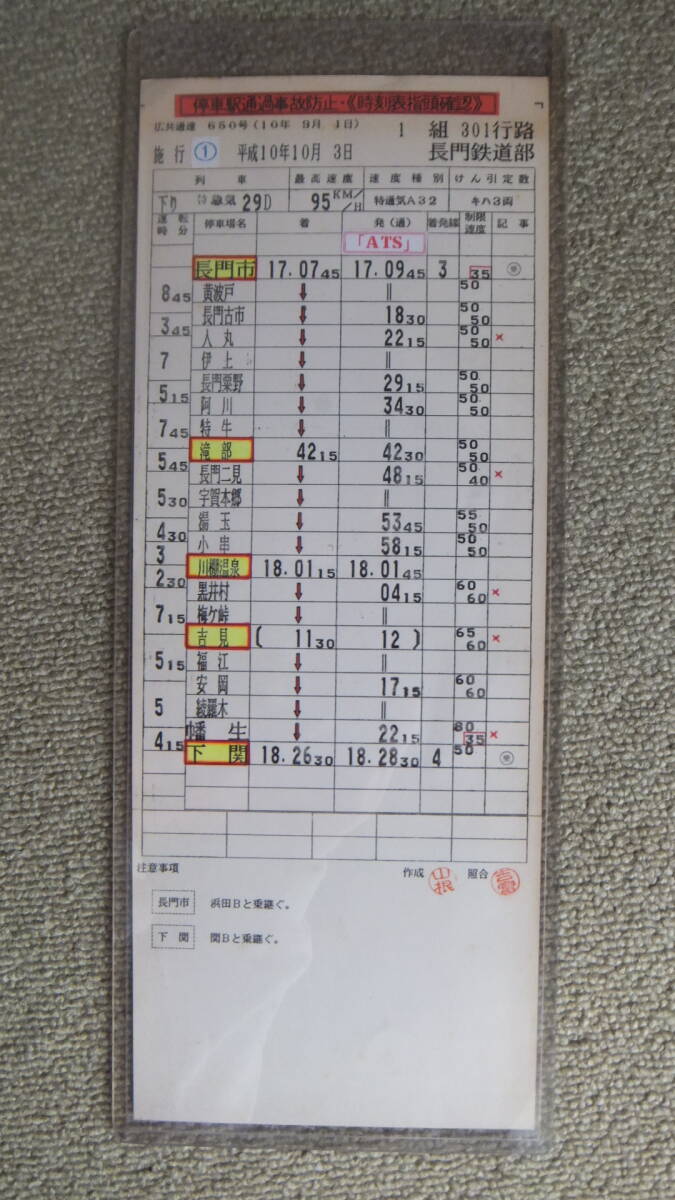 停車駅通過事故防止・《時刻表指頭確認》
広共通達 650号(10年 9月 1日)
1 組 301行路
施行 ① 平成10年10月 3日 長門鉄道部
列車 最高速度 速度種別 けん引定数
下り 急気 29D 95KM/H 特通気A32 キハ3両
運転時分 停車場名 着 発(通) 着発線 制限速度 記事
「ATS」
長門市 17.07 45 17.09 45 3 35
8 45 黄波戸 ↓ || 50
長門古市 ↓ 18 30 50 50
3 45 人丸 ↓ 22 15 50 50 ×
7 伊上 ↓ ||
長門粟野 ↓ 29 15 50 50
5 15 阿川 ↓ 34 30 50 50
7 45 特牛 ↓ ||
滝部 42 15 42 30 50 50
5 45 長門二見 ↓ 48 15 50 40 ×
5 30 宇賀本郷 ↓ ||
湯玉 ↓ 53 45 55 50
4 30 小串 ↓ 58 15 50 50
3 川棚温泉 18.01 15 18.01 45
2 30 黒井村 ↓ 04 15 60 60 ×
7 15 梅ケ峠 ↓ ||
吉見 ( 11 30 12 ) 65 60 ×
5 15 福江 ↓ ||
安岡 ↓ 17 15 60 60
5 綾羅木 ↓ ||
幡生 ↓ 22 15 60 35 ×
4 15 下関 18.26 30 18.28 30 4 50
注意事項 作成 山根 照合
長門市 浜田Bと乗継ぐ。
下関 関Bと乗継ぐ。